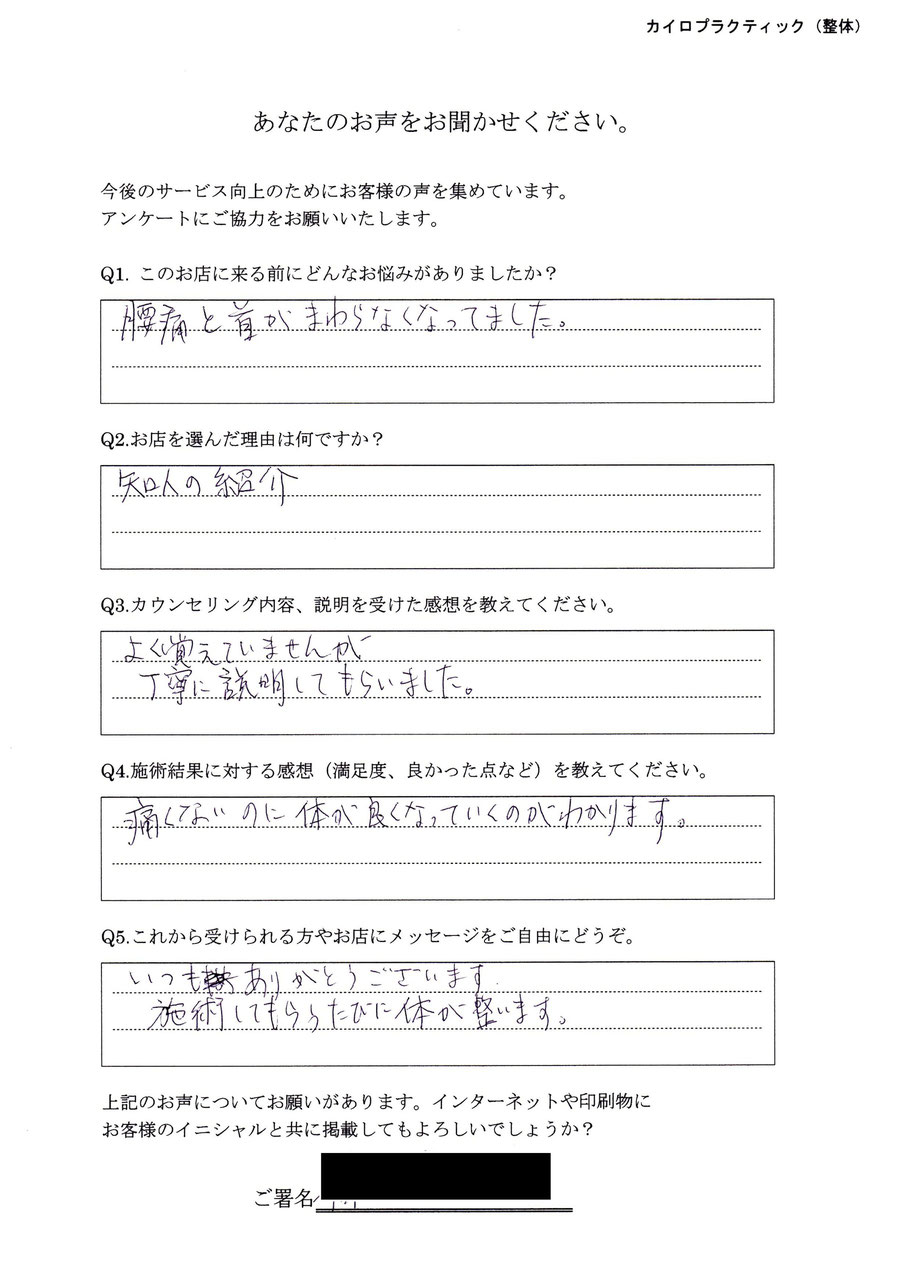 カイロプラクティック（整体）
あなたのお声をお聞かせください。
今後のサービス向上のためにお客様の声を集めています。
アンケートにご協力をお願いいたします。
Q1. このお店に来る前にどんなお悩みがありましたか？
腰痛と首がまわらなくなってました。
Q2.お店を選んだ理由は何ですか？
知人の紹介
Q3.カウンセリング内容、説明を受けた感想を教えてください。
よく覚えていませんが
丁寧に説明してもらいました。
Q4.施術結果に対する感想（満足度、良かった点など）を教えてください。
痛くないのに体が良くなっていくのがわかります。
Q5.これから受けられる方やお店にメッセージをご自由にどうぞ。
いつもありがとうございます.
施術してもらうたびに体が整います。
上記のお声についてお願いがあります。インターネットや印刷物に
お客様のイニシャルと共に掲載してもよろしいでしょうか？
ご署名